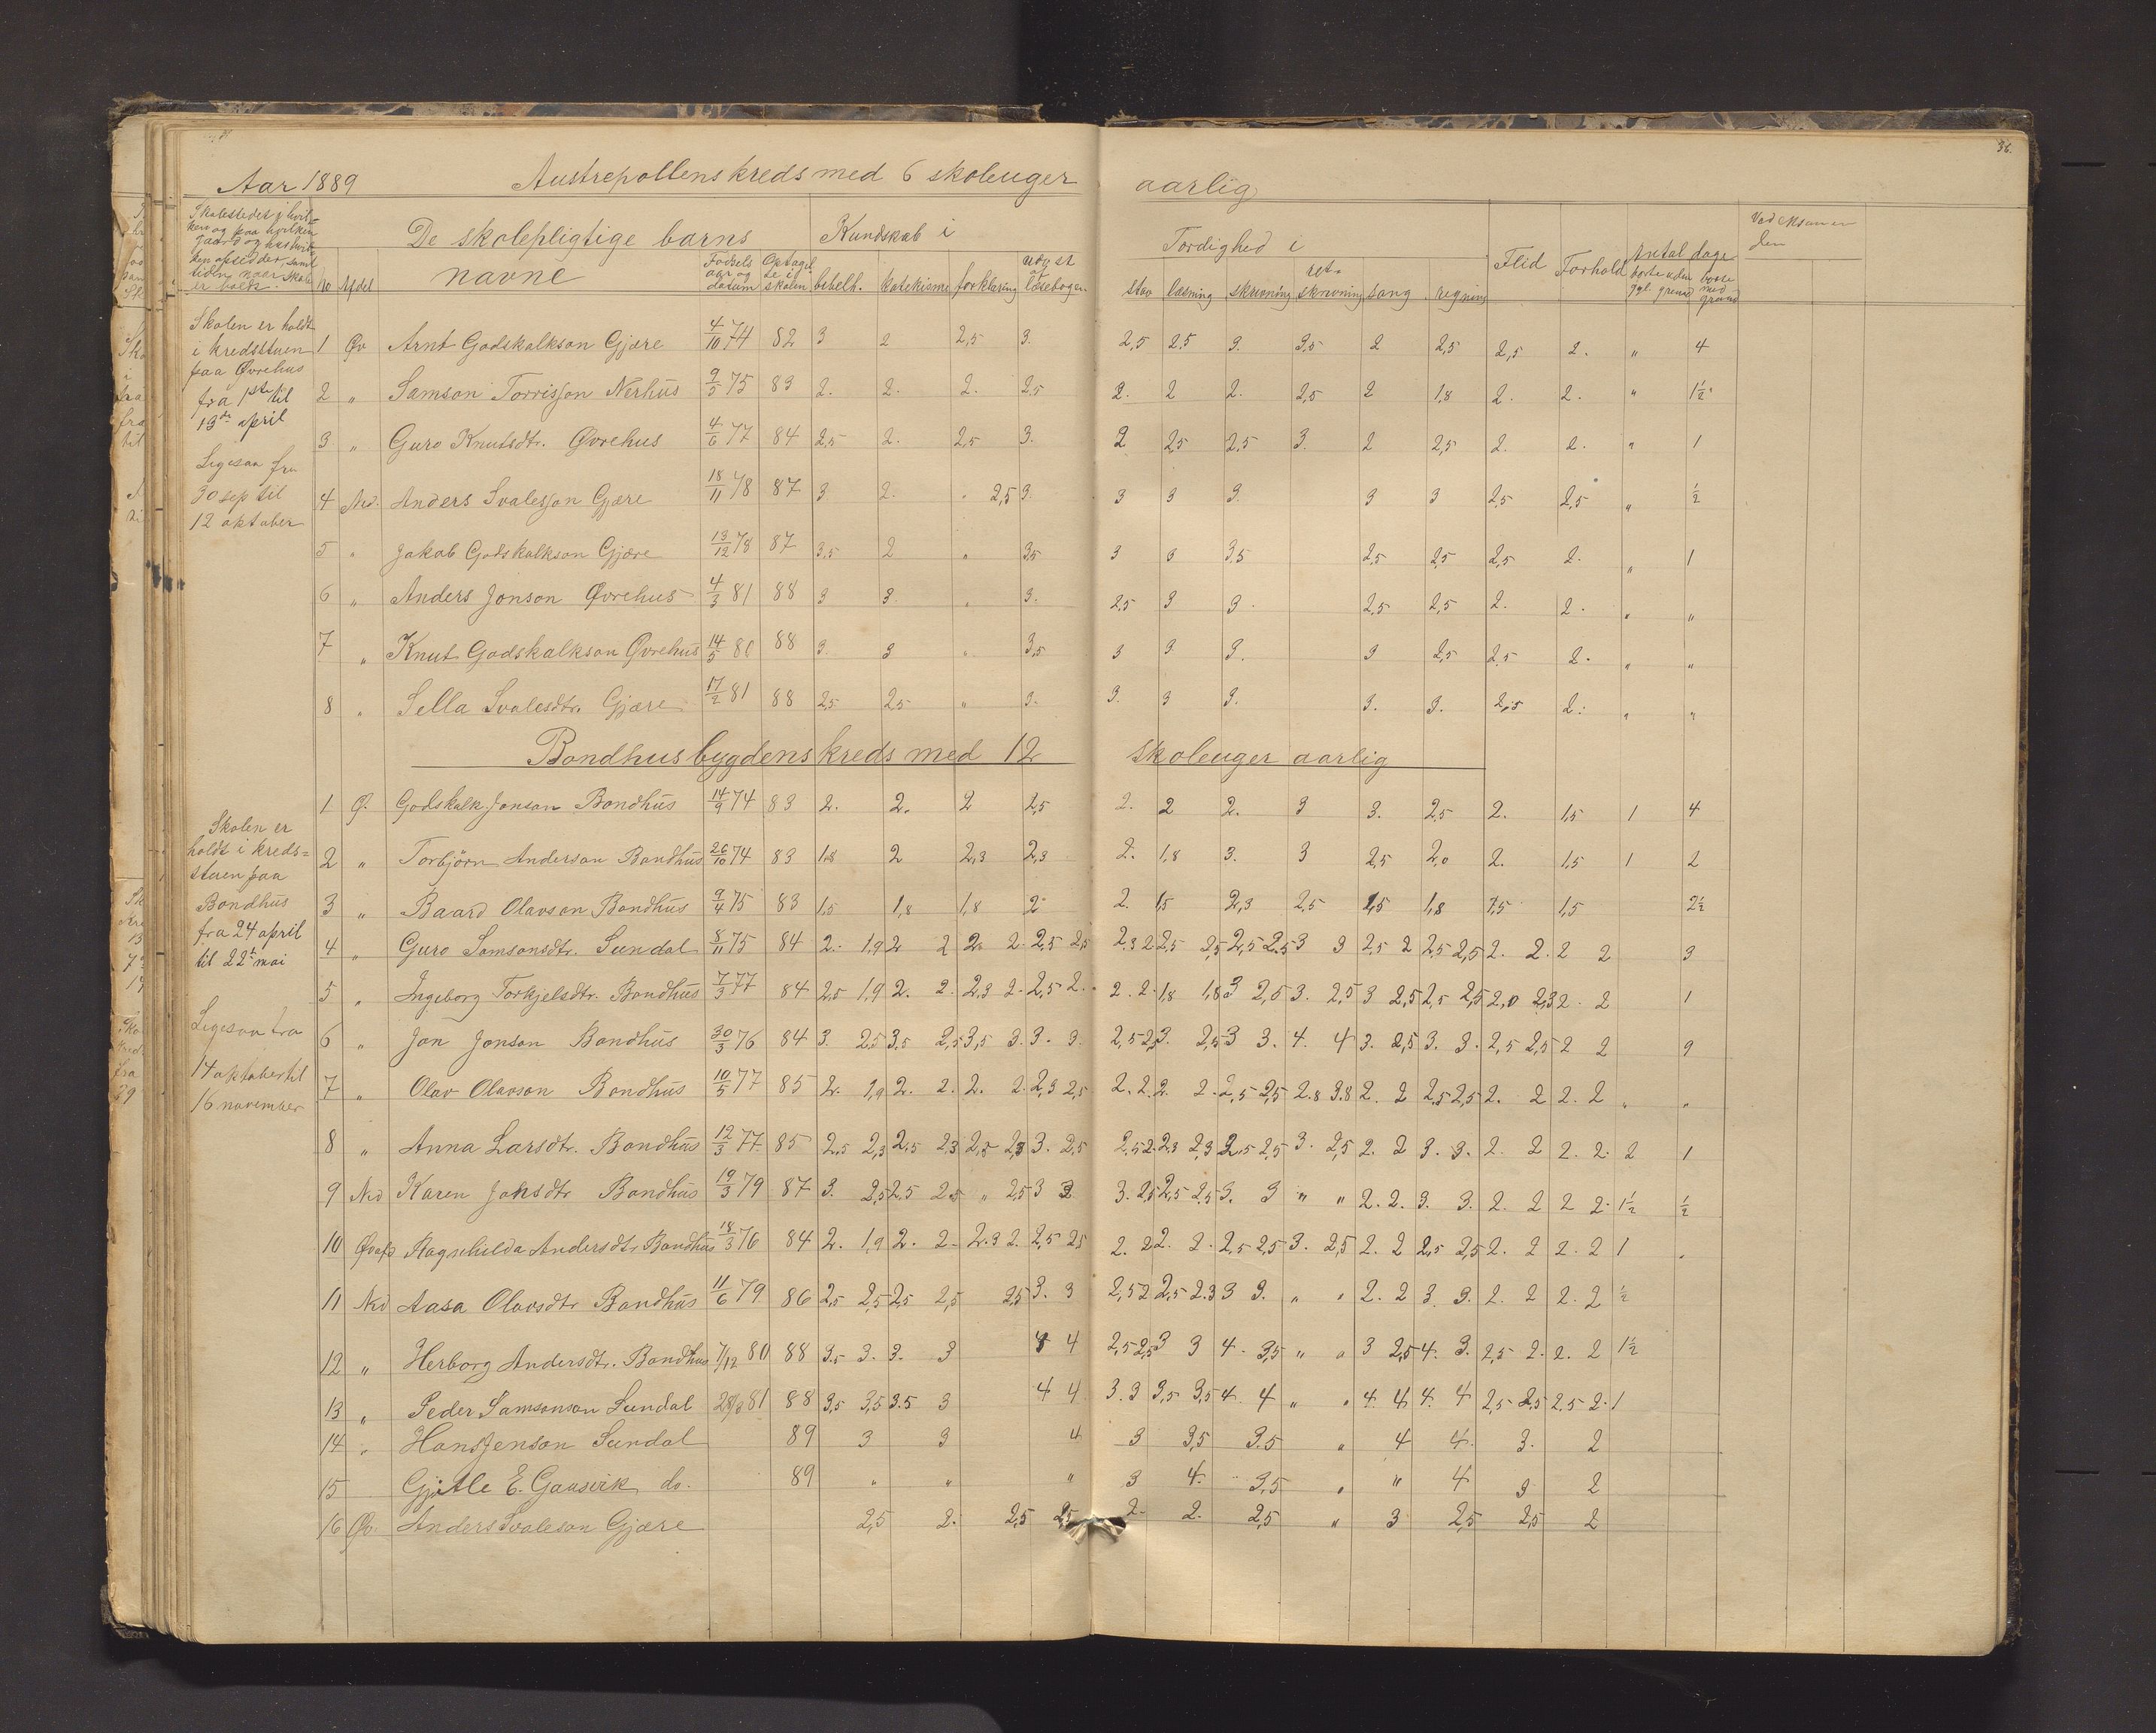 36.
Aar 1889 Austrepollens kreds med 6 skoleuger aarlig
Skolestedet i hvilken og paa hvilken gaard og hushvilken opsiddet, samt tiden naar skole er holdt.
De skolepligtige barns navne
Kundskab i
Færdighed i
Flid Forhold
Antal dage
Ved eksamen den
No Afdel
Fødsels aar og datum
Optaget i skolen
bibelh. katekisme forklaring udv. st. af læsebogen
stav læsning skrivning ret-skrivning sang regning
borte uden gyl. grund borte med grund
Skolen er holdt
i kredsstuen
paa Øvrehus
fra 1ste til
13de april
Ligesaa fra
30 sep til
12 oktober
1 Øv Arnt Godskalkson Gjære 4/10 74 82 3 2 2,5 3. 2,5 2,5 3. 3,5 2 2,5 2,5 2. " 4
2 " Samson Torrisson Nerhus 9/5 75 83 2. 2. 2. 2,5 2. 2 2. 2,5 2 1,8 2. 2. " 1½
3 " Guro Knutsdtr. Øvrehus 4/6 77 84 2,5 2. 2,5 3. 2 2,5 2,5 3. 2 2,5 2. 2. " 1
4 Ned. Anders Svalesson Gjære 18/11 78 87 3 2. " 2,5 3. 3 3 3. 3 3 2,5 2,5 " ½
5 " Jakob Godskalkson Gjære 13/12 78 87 3,5 2 " 3,5 3 3 3,5 2,5 2,5 2,5 2. " 1
6 " Anders Jonson Øvrehus 4/3 81 88 3 3. " 3. 2,5 3 3. 2,5 2,5 2. 2. " "
7 " Knut Godskalkson Øvrehus 14/5 80 88 3. 3 " 3,5 3 3. 3. 3 2,5 2,5 2. " "
8 " Sella Svalesdtr. Gjære 17/2 81 88 2,5 2,5 " 3. 3. 3 3. 3. 3. 2,5 2. " "
Bondhusbygdens kreds med 12 skoleuger aarlig
Skolen er
holdt i kreds-
stuen paa
Bondhus
fra 24 april
til 22 mai
Ligesaa fra
14 oktober til
16 november
1 Ø. Godskalk Jonson Bondhus 14/9 74 83 2. 2. 2 2,5 2. 2 2. 3 3. 2,5 2. 1,5 1 4
2 " Torbjörn Anderson Bondhus 26/10 74 83 1,8 2 2,3 2,3 2. 1,8 3. 3 2,5 2,0 2. 1,5 1 2
3 " Baard Olavson Bondhus 9/4 75 83 1,5 1,8 1,8 2 2. 1,5 2,3 2,5 1,5 1,8 1,5 1,5 2½
4 " Guro Samsonsdtr. Sundal 8/11 75 84 2. 1,9 2 2 2. 2. 2,5 2,5 2,3 2 2,5 2,5 2,5 2,5 3 3 2,5 2 2,5 2,5 2. 2. 2 2 3
5 " Ingeborg Torkjelsdtr. Bondhus 7/3 77 84 2,5 1,9 2. 2. 2,3 2. 2,5 2. 2. 2. 1,8 1,8 3 2,5 3. 2,5 3 2,5 2,5 2,5 2,0 2,3 2. 2 1
6 " Jon Jonson Bondhus 30/3 76 84 3. 2,5 3,5 2,5 3,5 3. 3. 3. 2,5 2,5 3. 2,5 3 3. 4. 4 3. 2,5 3. 3. 2,5 2,5 2 2 9
7 " Olav Olavson Bondhus 10/5 77 85 2. 1,9 2. 2. 2. 2. 2,3 2,5 2. 2. 2. 2. 2,5 2,5 2.8 3.8 2. 2 2,5 2,5 2. 2 2. 2 " "
8 " Anna Larsdtr. Bondhus 12/3 77. 85 2,5 2,3 2,5 2,3 2,5 2,3 3. 2,5 2,5 2. 2,3 2,3 2,5 2,5 3. 2,5 2. 2 3. 3. 2. 2 2. 2. 2 1
9 Ned Karen Jonsdtr Bondhus 19/3 79 87 3. 2,5 2,5 2,5 " 2,5 3 3 3. 2,5 2,5 2,5 3. 3 " " 2. 2. 3. 3. 2. 2 2 2. 1½ ½
10 Øvafd Ragnhilda Andersdtr. Bondhus 18/3 76 84 2. 1,9 2. 2. 2.3 2. 2,5 2,5 2. 2 2. 2. 2,5 2,5 3. 2,5 2. 2 2,5 2,5 2. 2 2. 2 1 "
11 Ned Aasa Olavsdtr Bondhus 11/6 79 86 2,5 2,5 2,5 2,5 2,5 3. 3 2,5 2 2,5 2.3 3 3. " " 2. 2 3. 3. 2. 2 2. 2 ½
12 " Herborg Andersdtr. Bondhus 7/12 80 88 3.5 3. 3. 3 4 4 2,5 2,5 3 3 4. 3,5 " " 3 2,5 4. 3. 2,5 2. 2. 2 1½
13 " Peder Samsonson Sundal 28/8 81 88 3,5 3,5 3.5 3 4 4 3. 3 3,5 3,5 4. 4 " " 4. 4 4. 4 2,5 2,5 2.5 2. 1
14 " Hans Jenson Sundal 89 3 3 4 3 3,5 3.5 " 4 4. 3. 2
15 Gjitle E. Gausvik do. 89 " " " 3 4. 3,5 " " 4 3 2
16 Øv. Anders Svaleson Gjære 2,5 2. 2,5 2,5 2. 2. 2,5 " 3 2,5 2,5 2